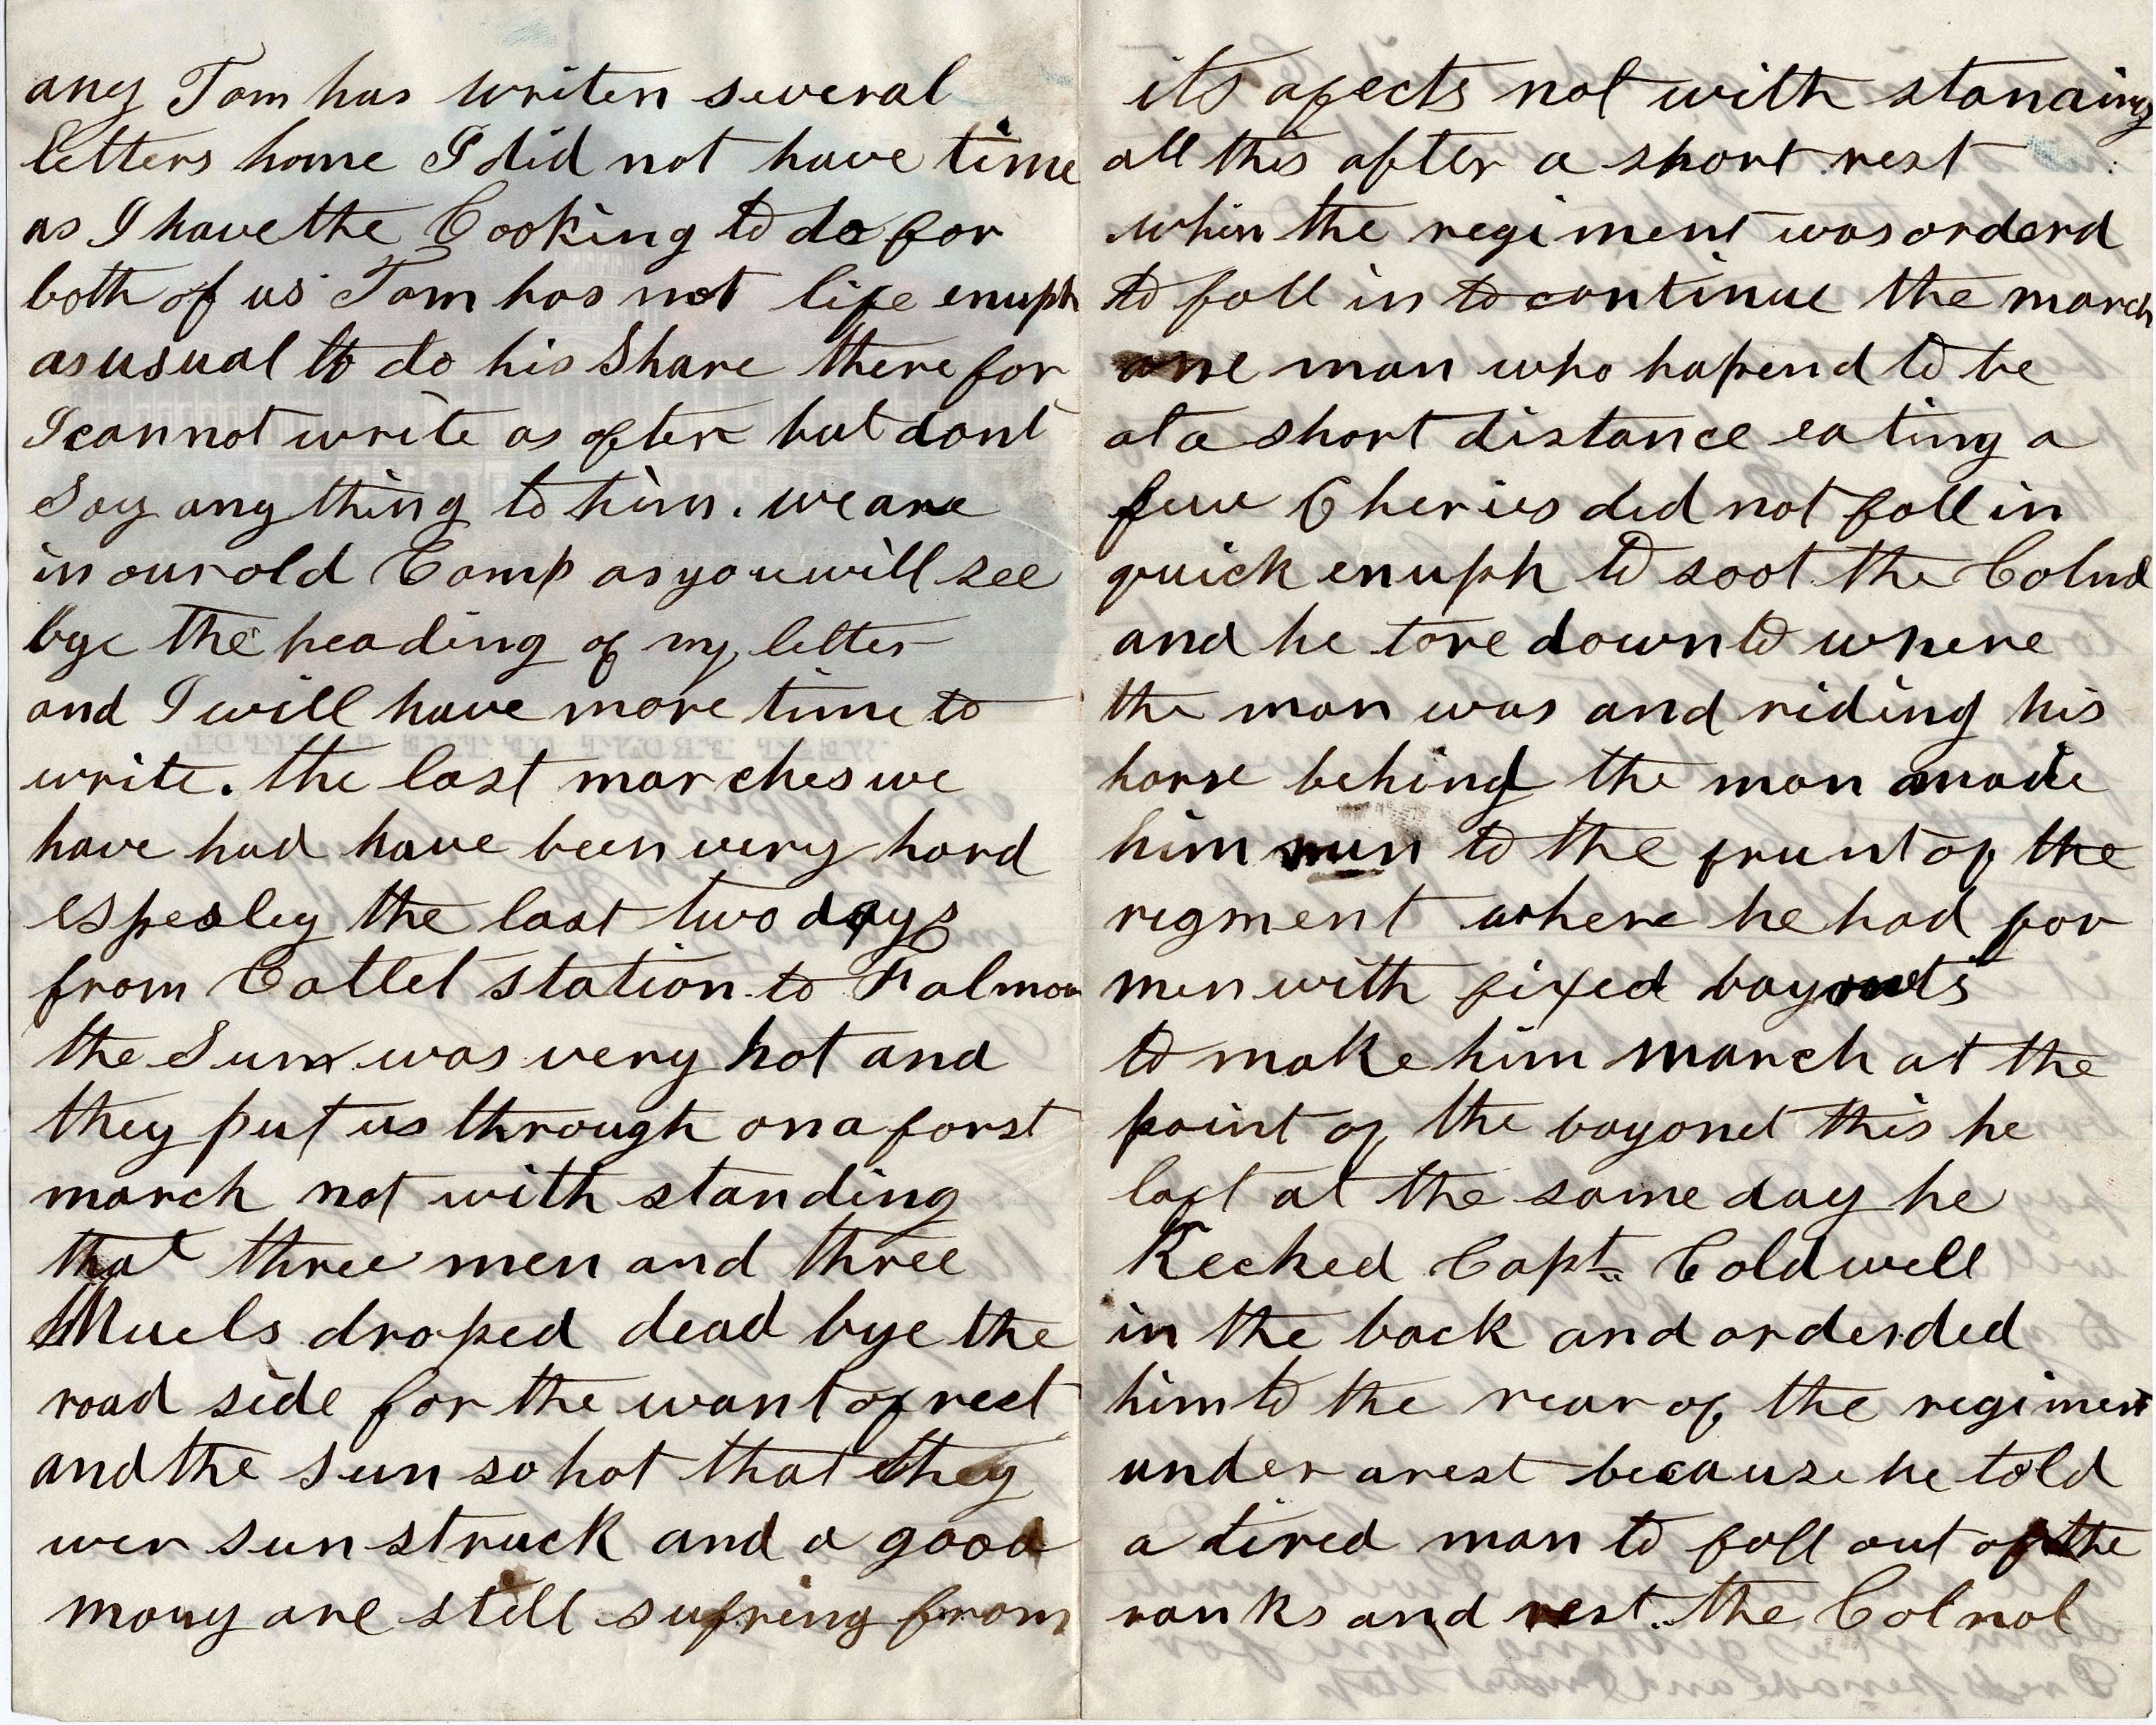 any Tom has writen several
letters home I did not have time
as I have the Cooking to do for
both of us Tom has not life enuph
as usual to do his Share there for
I cannot write as often but dont
Say any thing to him. we are
in our old Camp as you will see
bye the heading of my letter
and I will have more time to
write. the last marches we
have had have been very hard
espesley the last two days
from Catlet station to Falmou
the Sun was very hot and
they put us through on a forst
march not with standing
that three men and three
Muels droped dead bye the
road side for the want of rest
and the sun so hot that they
wer sun struck and a good
many are still sufring from
its afects not with standing
all this after a short rest
when the regiment was orderd
to fall in to continue the march
one man who hapend to be
at a short distance eating a
few Cheries did not fall in
quick enuph to soot the Colnel
and he tore down to where
the man was and riding his
horse behind the man made
him run to the frunt of the
regment where he had for
men with fixed bayonets
to make him march at the
point of the bayonet this he
last at the same day he
Kecked Capt. Coldwell
in the back and orderded
him to the rear of the regiment
under arest because he told
a tired man to fall out of the
ranks and rest. the Colnol